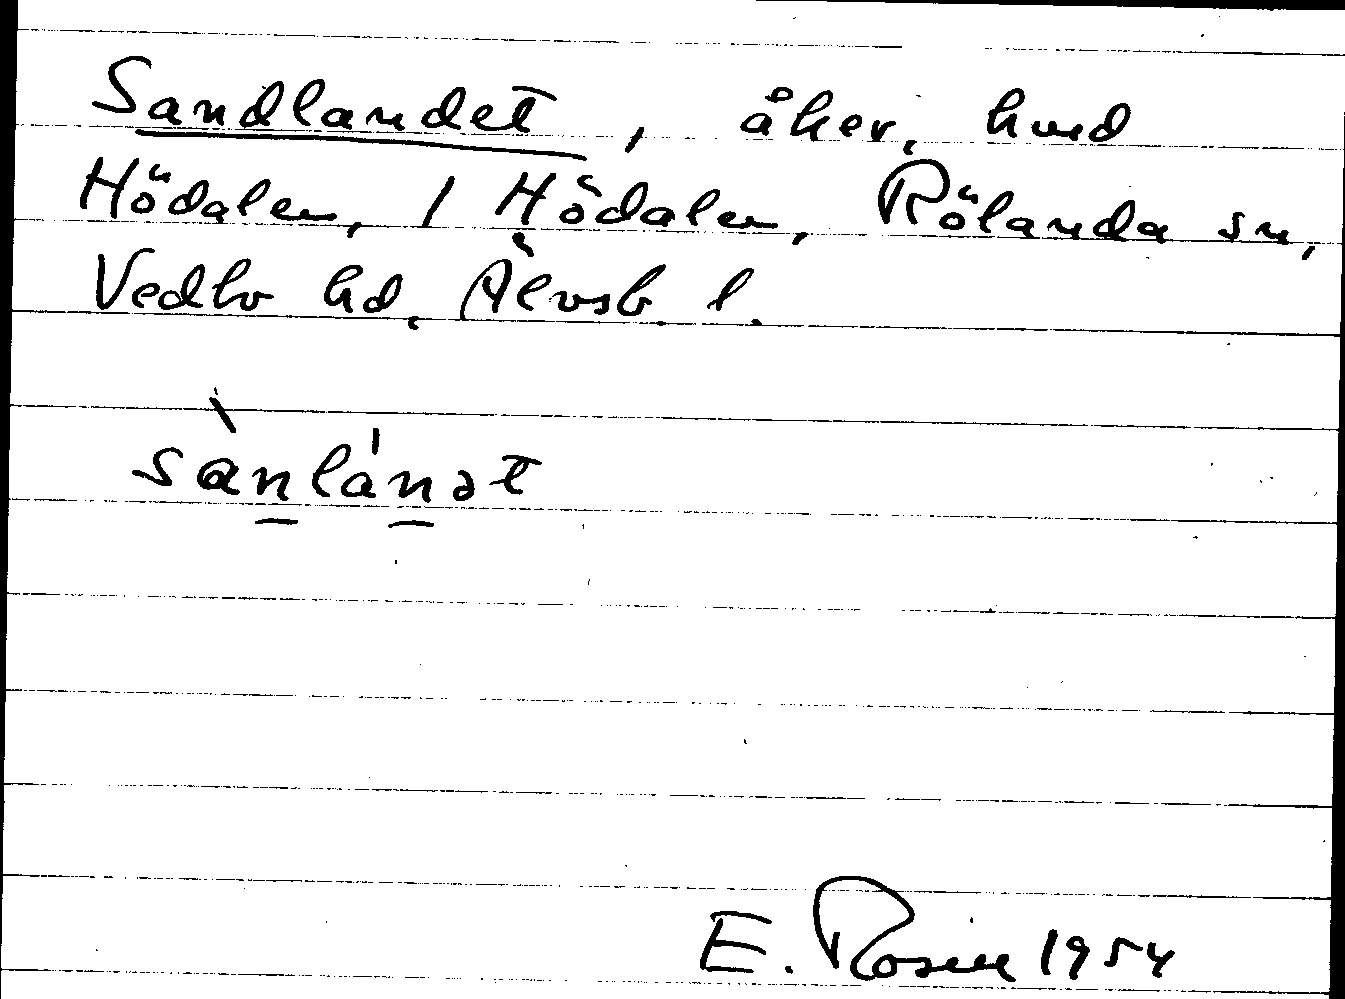 Sandlandet, åker, hmd
Hödalen, 1 Hödalen, Rölanda sn,
Vedbo hd, Älvsb. l.
sànlánət
E. Rosén 1954